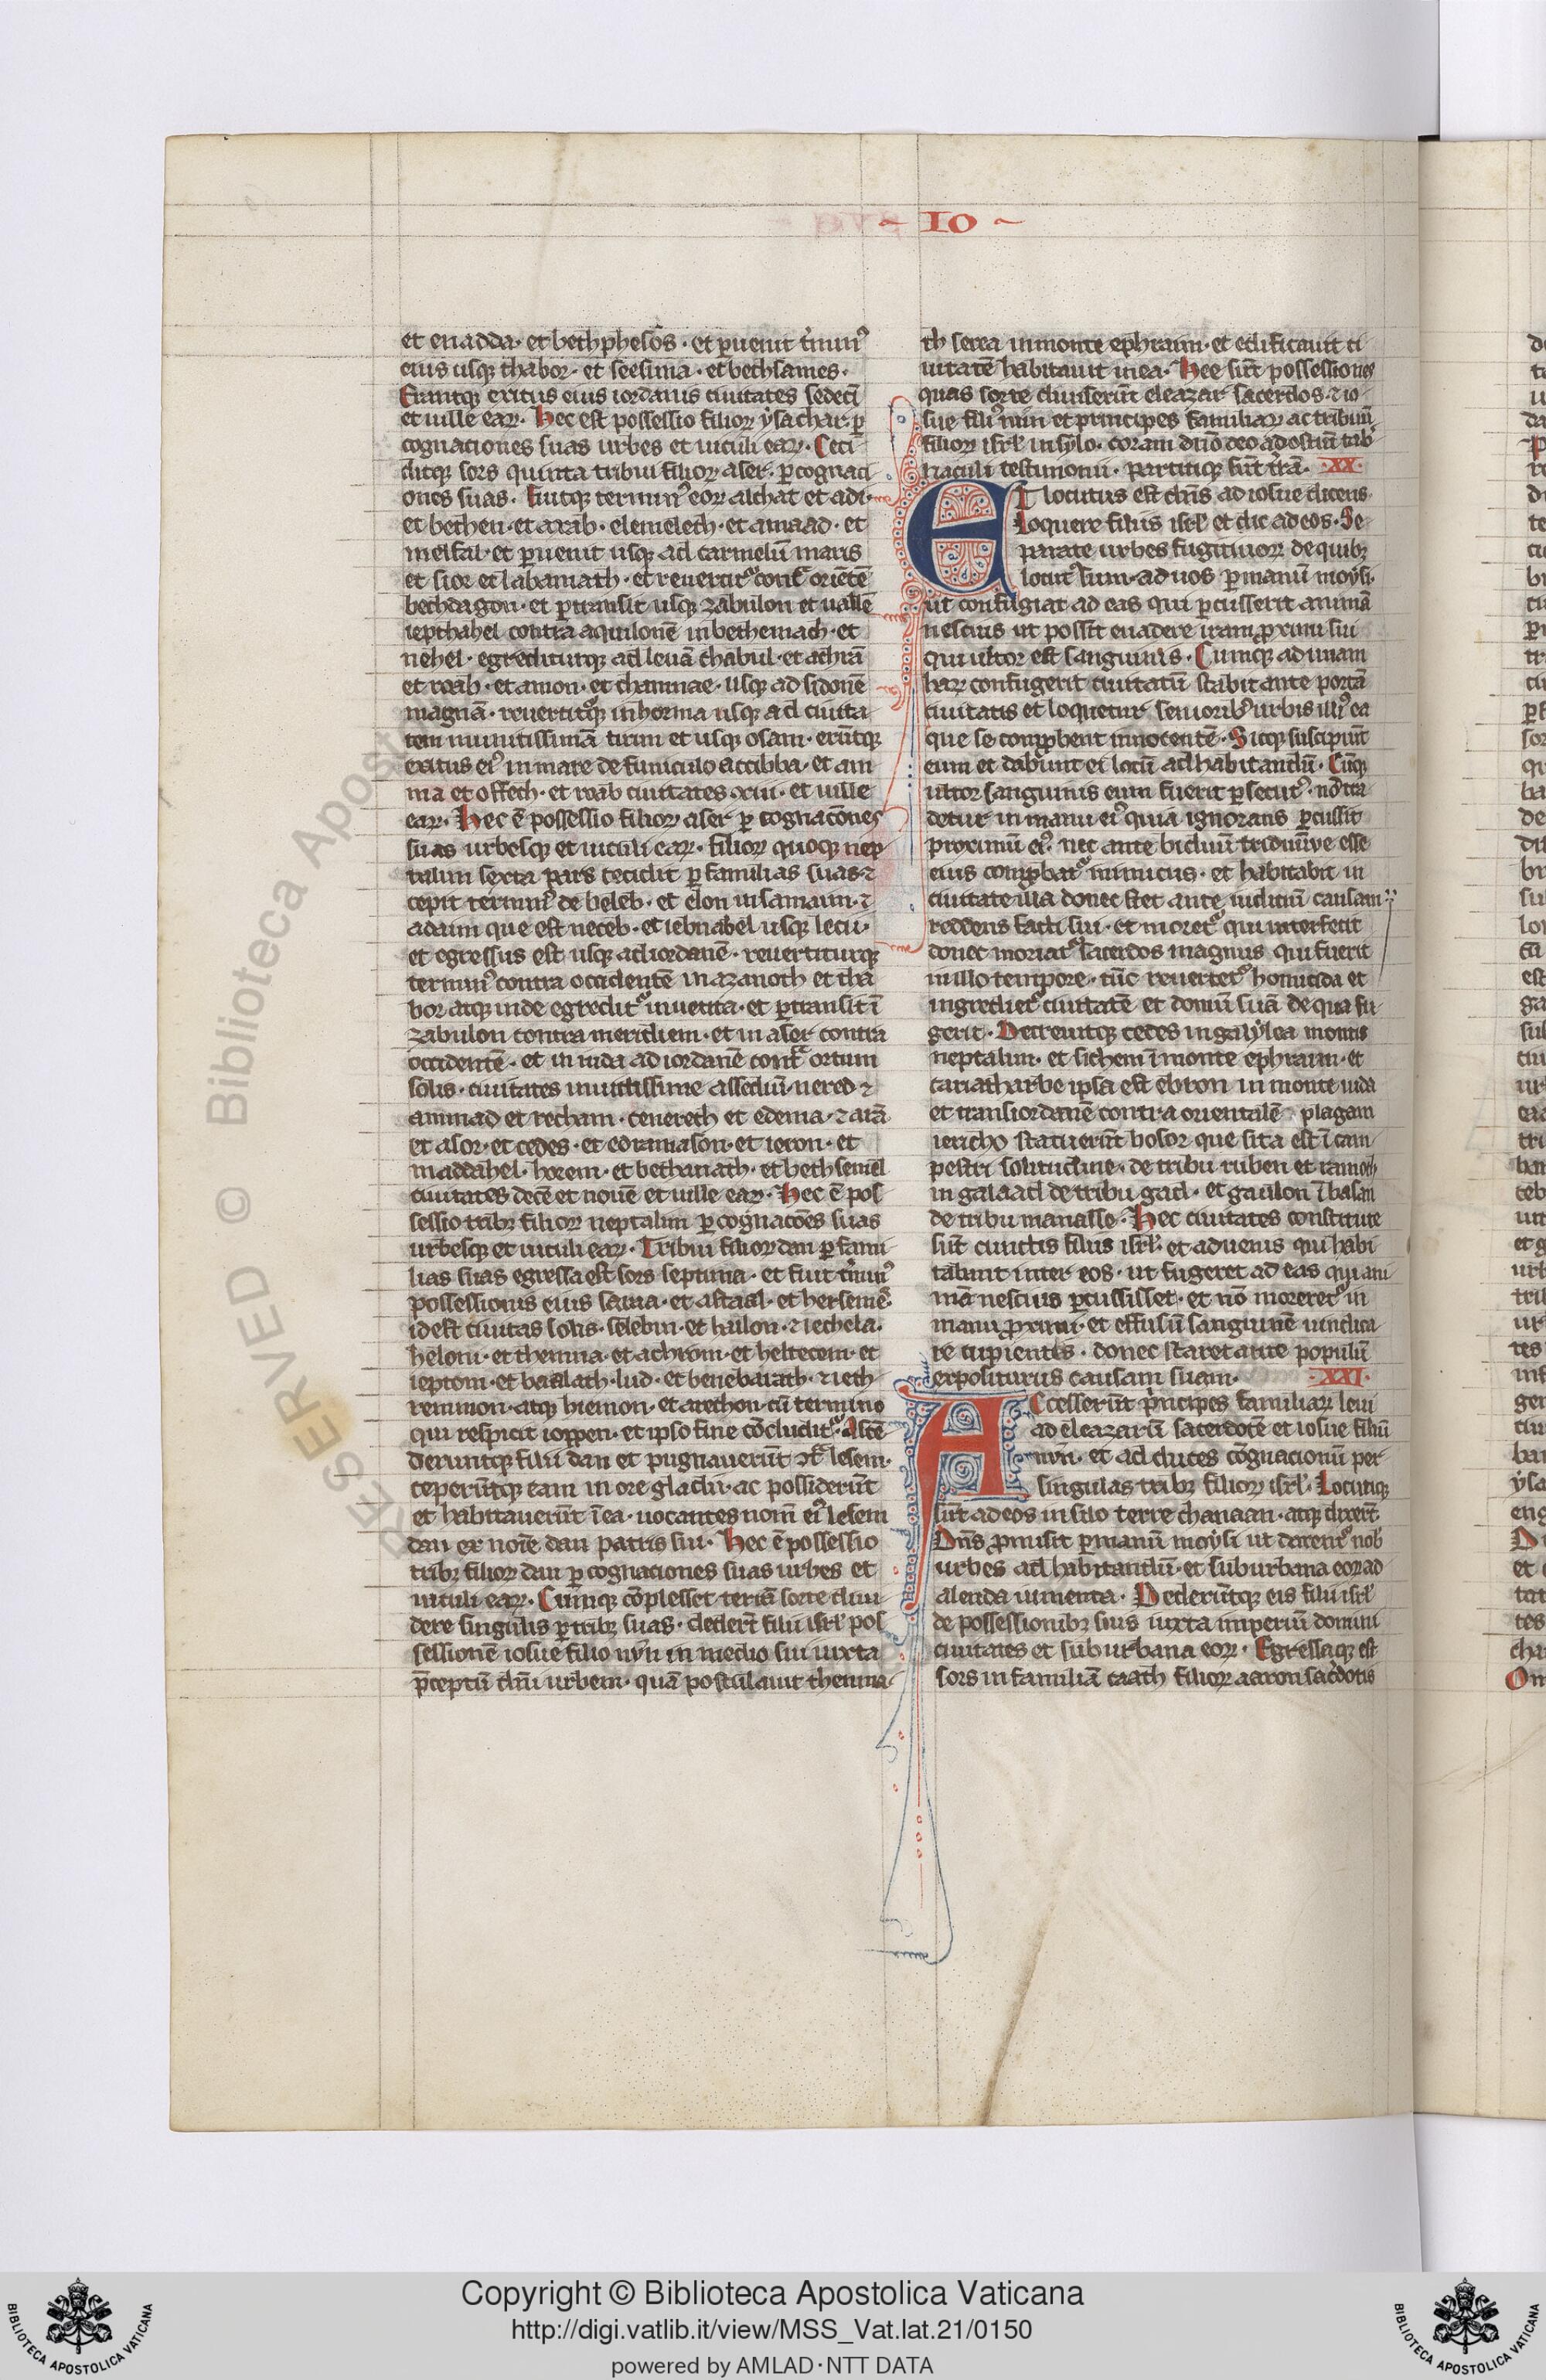 ~ IO ~
et enadda · et bethphesos · et ꝑuenit t̾min᷒
eius usqꝫ thabor · et seesima · et bethsames ·
Eruntqꝫ exitus eius iordanis ciuitates sedeci̅
et uille eaꝝ · Hec est possessio filioꝝ ysachar · ꝑ
cognaciones suas urbes et uiculi eaꝝ · Ceci
ditqꝫ sors quinta tribui filioꝝ aser · ꝑ cognaci
ones suas · fuitqꝫ termin᷒ eoꝝ alchat et adi
et bethen · et axab · elemelech · et amaad · et
messal · et ꝑuenit usqꝫ ad carmelu̅ maris
et sior et labanath · et reuertit᷑ cont᷑ orie̅te̅
bethdagon · et ꝑtransit usqꝫ zabulon et ualle̅
iepthahel contra aquilone̅ in bethemach · et
nehel · egrediturqꝫ ad leua̅ chabul · et achra̅
et roab · et amon · et chamnae · usqꝫ ad sidone̅
magna̅ · reuertit᷑qꝫ in horma usqꝫ ad ciuita
tem munitissima̅ tirum et usqꝫ osam · eru̅tqꝫ
exitus ei᷒ in mare de funiculo accibba · et am
ma et offech · et roab ciuitates xxii · et uille
eaꝝ · Hec e̅ possessio filioꝝ aser ꝑ cognaco̅nes
suas urbesqꝫ et uiculi eaꝝ · filioꝝ quoqꝫ nep
talim sexta pars cecidit ꝑ familias suas · ⁊
cepit termin᷒ de heleb · et elon in sananim · ⁊
adaim que est neceb · et iebnahel usqꝫ lecu ·
et egressus est usqꝫ ad iordane̅ · reuertiturqꝫ
termin᷒ contra occidente̅ in azanoth et tha
bor atqꝫ inde egredit᷑ in uecuta · et ꝑtransit i̅
zabulon contra meridiem · et in aser contra
occidente̅ · et in iuda ad iordane̅ cont᷑ ortum
solis · ciuitates munitissime assediu̅ · uered ⁊
ammad et recham · cenereth et edema · ⁊ ara̅
et asor · et cedes · et edraiason · et ieron · et
maddahel · horem · et bethanath · et bethsemes
ciuitates dece̅ et noue̅ et uille eaꝝ · Hec e̅ pos
sessio tribꝫ filioꝝ neptalim ꝑ cognaco̅es suas
urbesqꝫ et uiculi eaꝝ · Tribui filioꝝ dan ꝑ fami
lias suas egressa est sors septima · et fuit t̾min᷒
possessionis eius saraa · et astaal · et herseme̅s
id est ciuitas solis · selebin · et hailon · ⁊ iethela ·
helom · et themna · et achrom · et heltecem · et
ieptom · et baalath · lud · et benebarath · ⁊ ieth
remmon · atqꝫ hiemon · et arechon · cu̅ termino
qui respicit ioppen · et ipso fine co̅cludit᷑ · Asce̅
deruntqꝫ filii dan et pugnaueru̅t ꝯt᷑ lesem ·
ceperu̅tqꝫ eam in ore gladii · ac possideru̅t
et habitaueru̅t i̅ ea · uocantes nom̅ ei᷒ lesem
dan ex no̅ie dan patris sui · Hec e̅ possessio
tribꝫ filioꝝ dan ꝑ cognaciones suas urbes et
uiculi eaꝝ · Cumqꝫ co̅plesset terra̅ sorte diui
dere singulis ꝑ tribꝫ suas · deder̅t filii isrl̅ pos
sessione̅ iosue filio nyn in medio sui iuxta
p̅ceptu̅ dni̅ urbem · qua̅ postulauit themna
th seraa in monte ephraim · et edificauit ci
uitate̅ habitauit in ea · Hee su̅t possessiones
quas sorte diuiseru̅t eleazar sacerdos · ⁊ io
sue fili᷒ nun et principes familiaꝝ ac tribuu̅
filioꝝ isrl̅ in sylo · coram dn̅o deo ad ostiu̅ tab̾
naculi testimonii · partitiqꝫ su̅t t̾ra̅ · ·XX·
ET locutus est dn̅s ad iosue dicens ·
Loquere filiis isrl̅ et dic ad eos · Se
parate urbes fugitiuoꝝ de quibꝫ
locut᷒ sum · ad uos ꝑ manu̅ moysi ·
ut confugiat ad eas qui ꝑcusserit anima̅
nescius ut possit euadere iram ꝓximi sui
qui ultor est sanguinis · Cumqꝫ ad unam
haꝝ confugerit ciuitatu̅ stabit ante porta̅
ciuitatis et loquetur seniorib᷒ urbis illi᷒ ea
que se comꝓbent innocente̅ · Sicqꝫ suscipiu̅t
eum et dabunt ei locu̅ ad habitandu̅ · Cu̅qꝫ
ultor sanguinis eum fuerit ꝑsecut᷒ · no̅ tra
detur in manu ei᷒ quia ignorans ꝑcussit
proximu̅ ei᷒ · nec ante biduu̅ triduu̅ue esse
eius comꝓbat᷑ inimicus · et habitabit in
ciuitate illa donec stet ante iudiciu̅ causam
reddens facti sui · et moret᷑ qui interfecit
donec moriat᷑ sacerdos magnus qui fuerit
in illo tempore · tu̅c reuertet᷑ homicida et
ingrediet᷑ ciuitate̅ et domu̅ sua̅ de qua fu
gerit · Decreuitqꝫ cedes in galylea montis
neptalim · et sichem i̅ monte ephraim · et
cariatharbe ipsa est ebron in monte iuda
et transiordane̅ contra orientale̅ plagam
iericho statueru̅t bosor que sita est i̅ cam
pestri solitudine · de tribu ruben et ramoth
in galaad de tribu gad · et gaulon i̅ basan
de tribu manasse · Hec ciuitates constitute
su̅t cunctis filiis isrl̅ · et aduenis qui habi
tabunt inter eos · ut fugeret ad eas qui ani
ma̅ nescius ꝑcussisset · et no̅ moreret᷑ in
manu ꝓximi · et effusu̅ sanguine̅ uindica
re cupientis · donec staret ante populu̅
expoliturus causam suam · ·XXI·
Accesseru̅t p̾ncipes familiaꝝ leui
ad eleazaru̅ sacerdote̅ et iosue filiu̅
nyn · et ad duces co̅gnacionu̅ per
singulas tribꝫ filioꝝ isrl̅ · Locutiqꝫ
su̅t ad eos in silo terre chanaan · atqꝫ dixer̅t
Dn̅s ꝓmisit ꝑ manu̅ moysi ut darent᷑ nob̅
urbes ad habitandu̅ · et suburbana eoꝝ ad
alenda iumenta · Dederu̅tqꝫ eis filii isrl̅
de possessionibꝫ suis iuxta imperiu̅ domini
ciuitates et suburbana eoꝝ · Egressaqꝫ est
sors in familia̅ caath filioꝝ aaron sac̾dotis
Copyright © Biblioteca Apostolica Vaticana
http://digi.vatlib.it/view/MSS_Vat.lat.21/0150
powered by AMLAD·NTT DATA
BIBLIOTECA APOSTOLICA VATICANA
BIBLIOTECA APOSTOLICA VATICANA
RESERVED © Biblioteca Apost